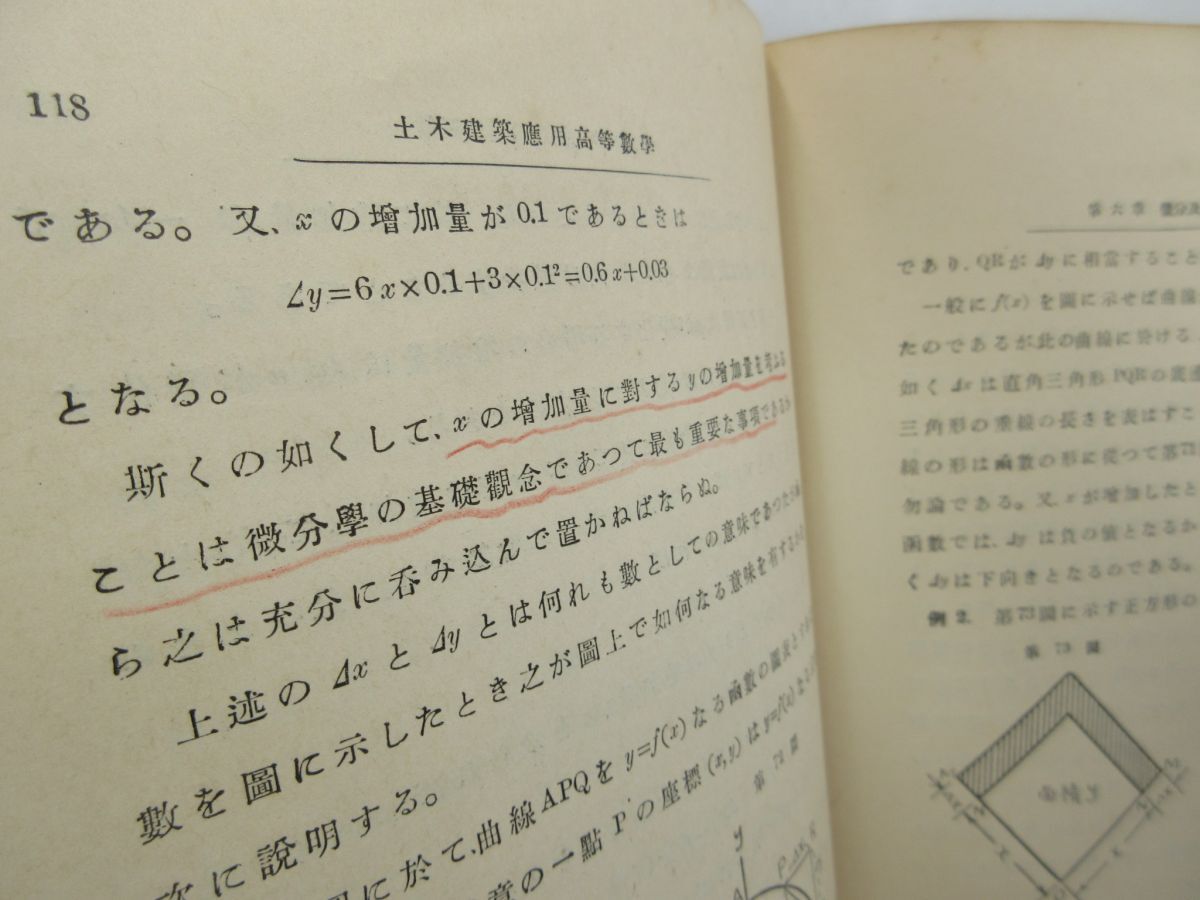 118
土木建築應用高等數學
である。又、xの增加量が0.1であるときは
⊿y=6x×0.1+3×0.1²=0.6x+0.03
となる。
斯くの如くして、xの增加量に對するyの增加量を考ふる
ことは微分學の基礎觀念であつて最も重要な事項であるか
ら之は充分に呑み込んで置かねばならぬ。
上述の⊿xと⊿yとは何れも數としての意味であつたが
數を圖に示したとき之が圖上で如何なる意味を有するか
次に說明する。
に於て、曲線APQをy=f(x)なる函數の圖表とす
意の一點Pの座標(x,y)はy=f(x)なる
第72圖
y
P
A
第六章
であり、QRが⊿yに相當すること
一般にf(x)を圖に示せば曲線
たのであるが此の曲線に於ける
如く⊿xは直角三角形PQRの底邊
三角形の垂線の長さを表はすこ
線の形は函數の形に從つて第71
勿論である。又、xが增加したと
函數では、⊿yは負の値となるか
く⊿yは下向きとなるのである。
例2. 第73圖に示す正方形の
第73圖
x
x